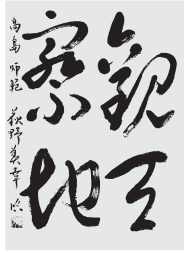 観天
察地
高島 師範 荻野美幸 臨